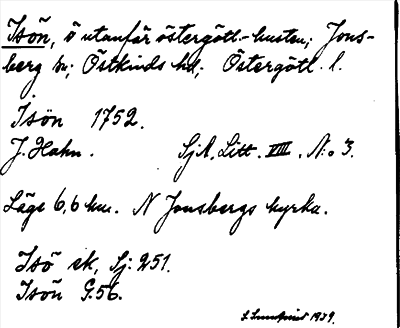 Isön, ö utanför östergötl.-kusten; Jons-
berg sn; Östkinds hd; Östergötl. l.
Isön 1752.
J. Hahn. SjA. Litt. VIII. N:o 3.
Läge 6,6 km. N Jonsbergs kyrka.
Isö ek, Sj: 251.
Isön G. 56.
S. Lundqvist 1929.